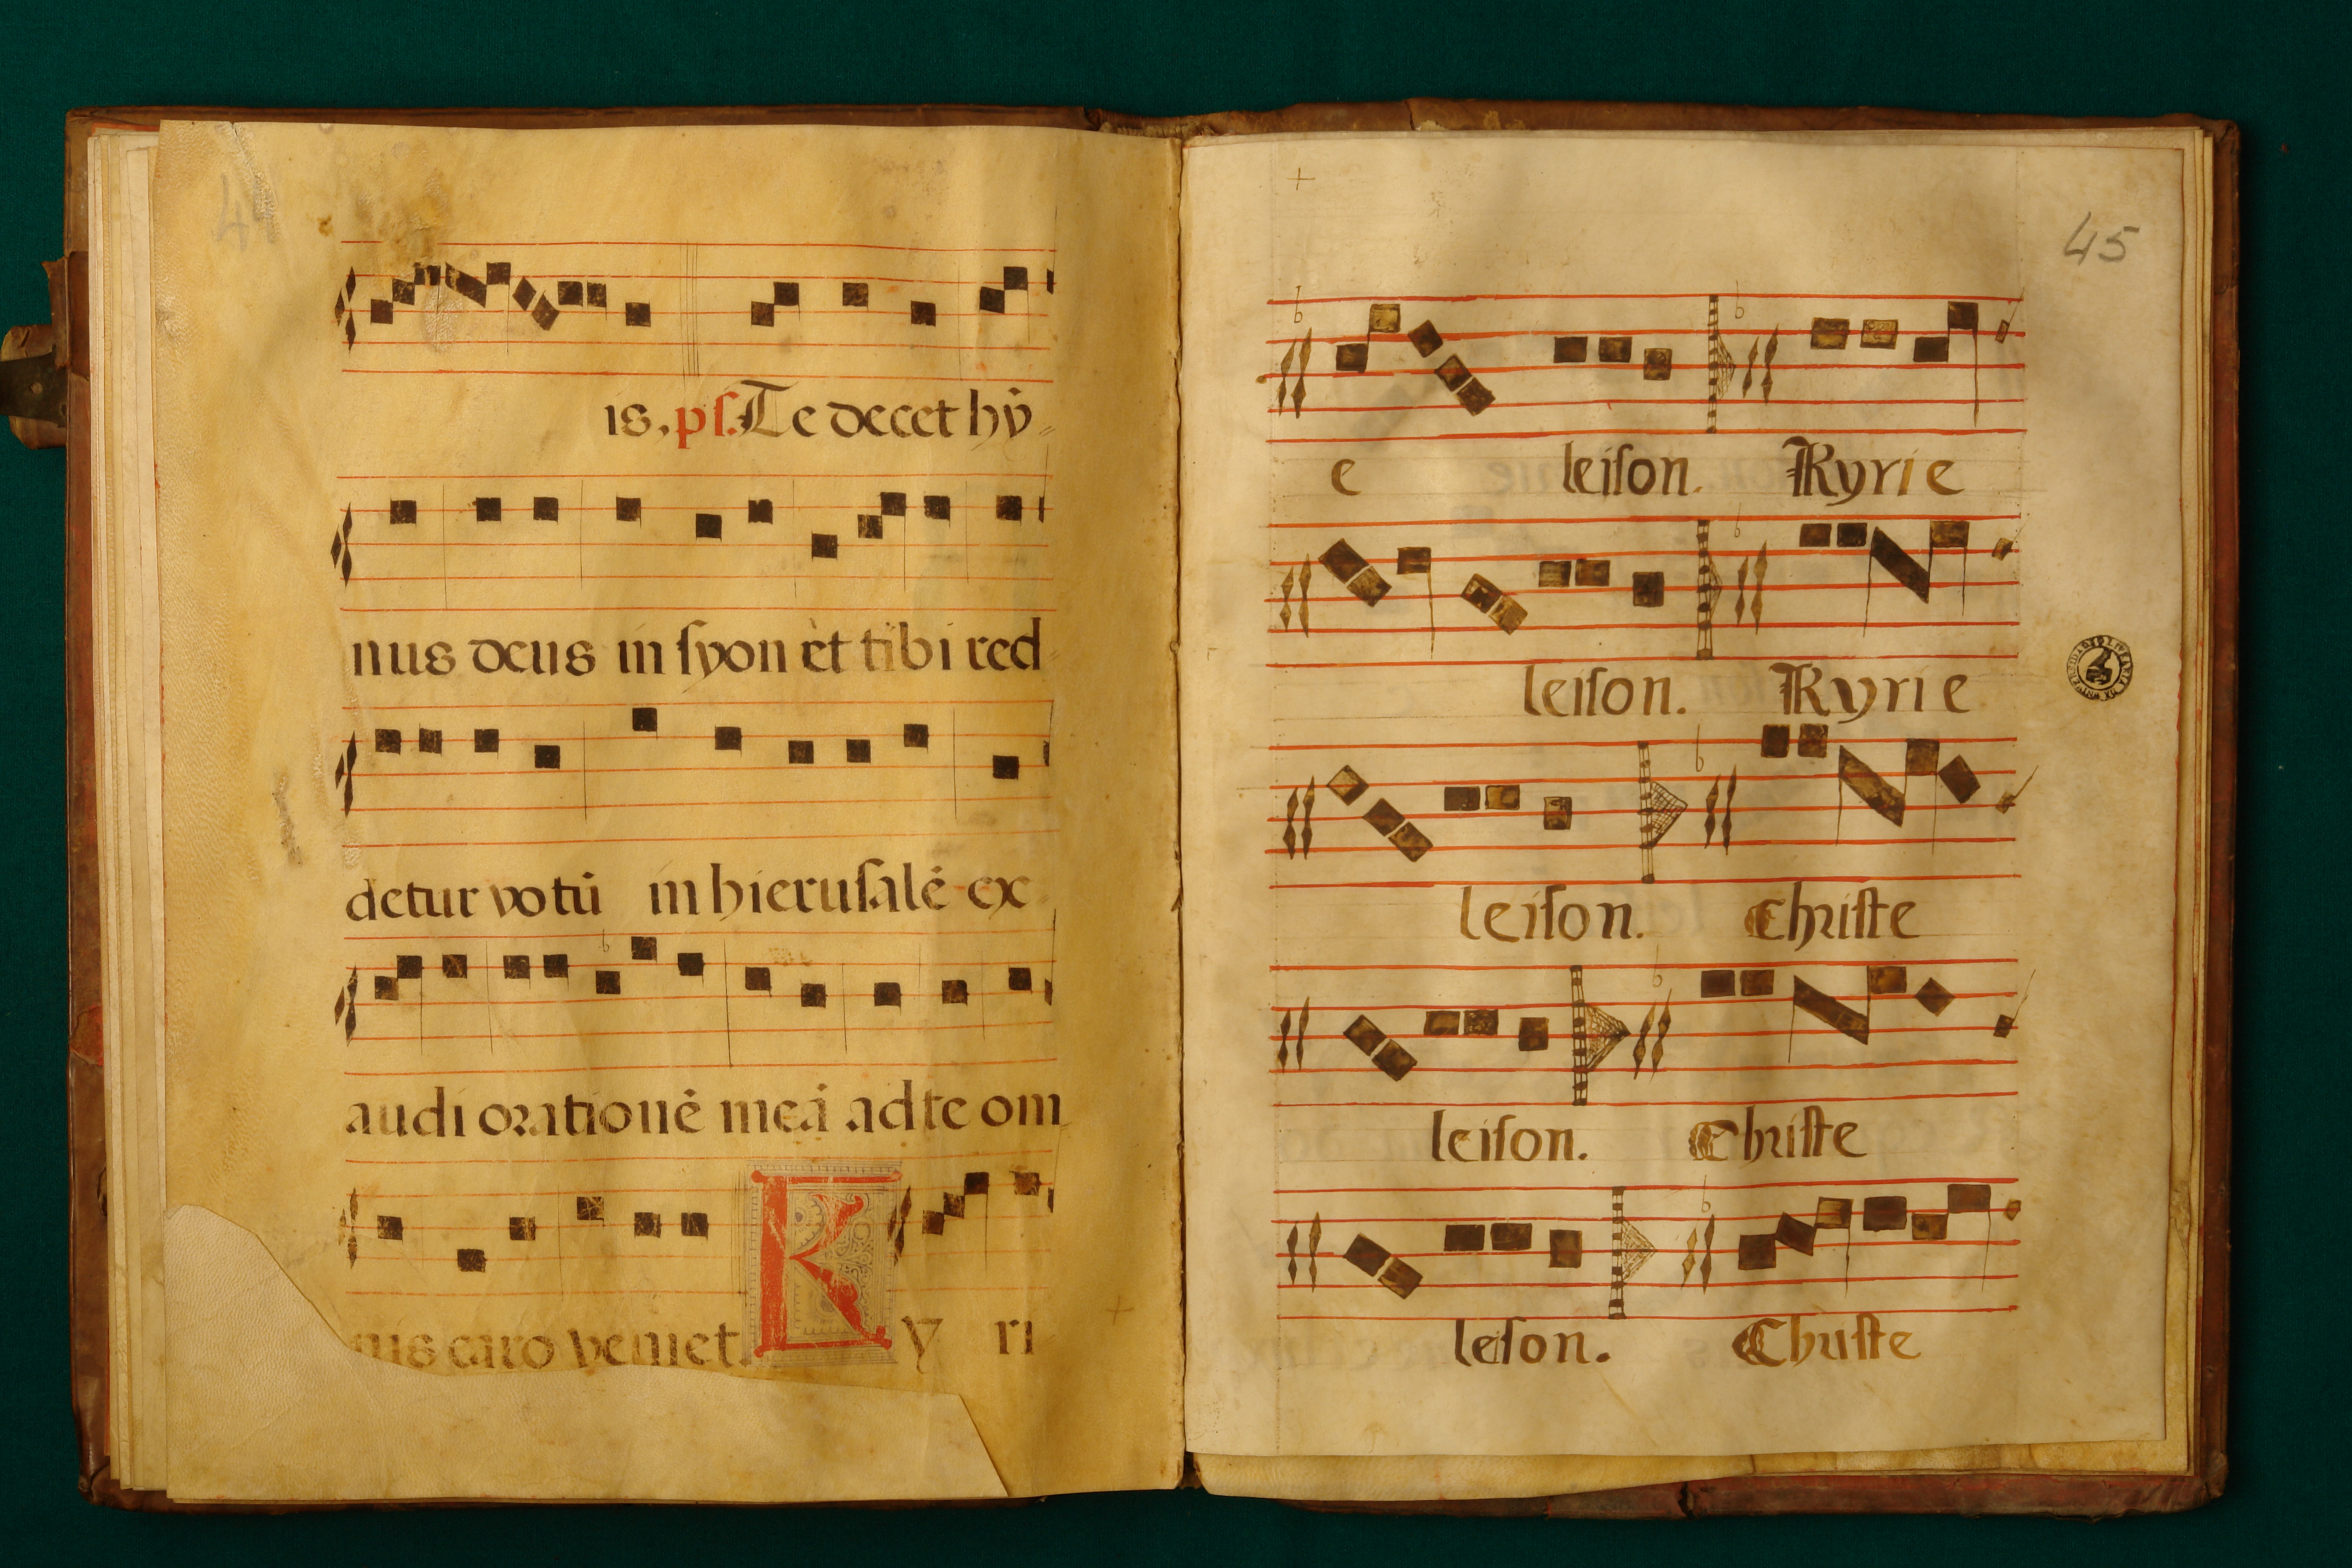 44
is. pſ. Te decet hȳ
nus deus in ſyon et tibi red
detur votū in hieruſalē ex
audi orationē meā ad te om
nis caro veniet. K y ri
45
e leiſon. Kyrie
leiſon. Kyrie
leiſon. Chriſte
leiſon. Chriſte
leſon. Chriſte